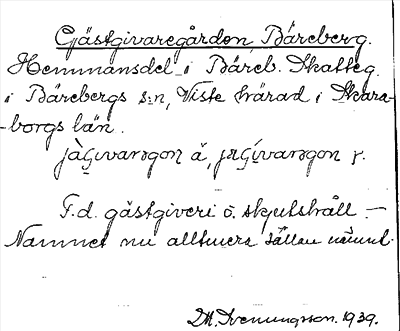 Gästgivaregården, Båreberg.
Hemmansdel i Båreb. Skatteg.
i Bårebergs s:n, Viste härad i Skara-
-borgs län.
F.d. gästgiveri o. skjutshåll. –
Namnet nu alltmera sällan nämnt.
M. Svenungsson. 1939.